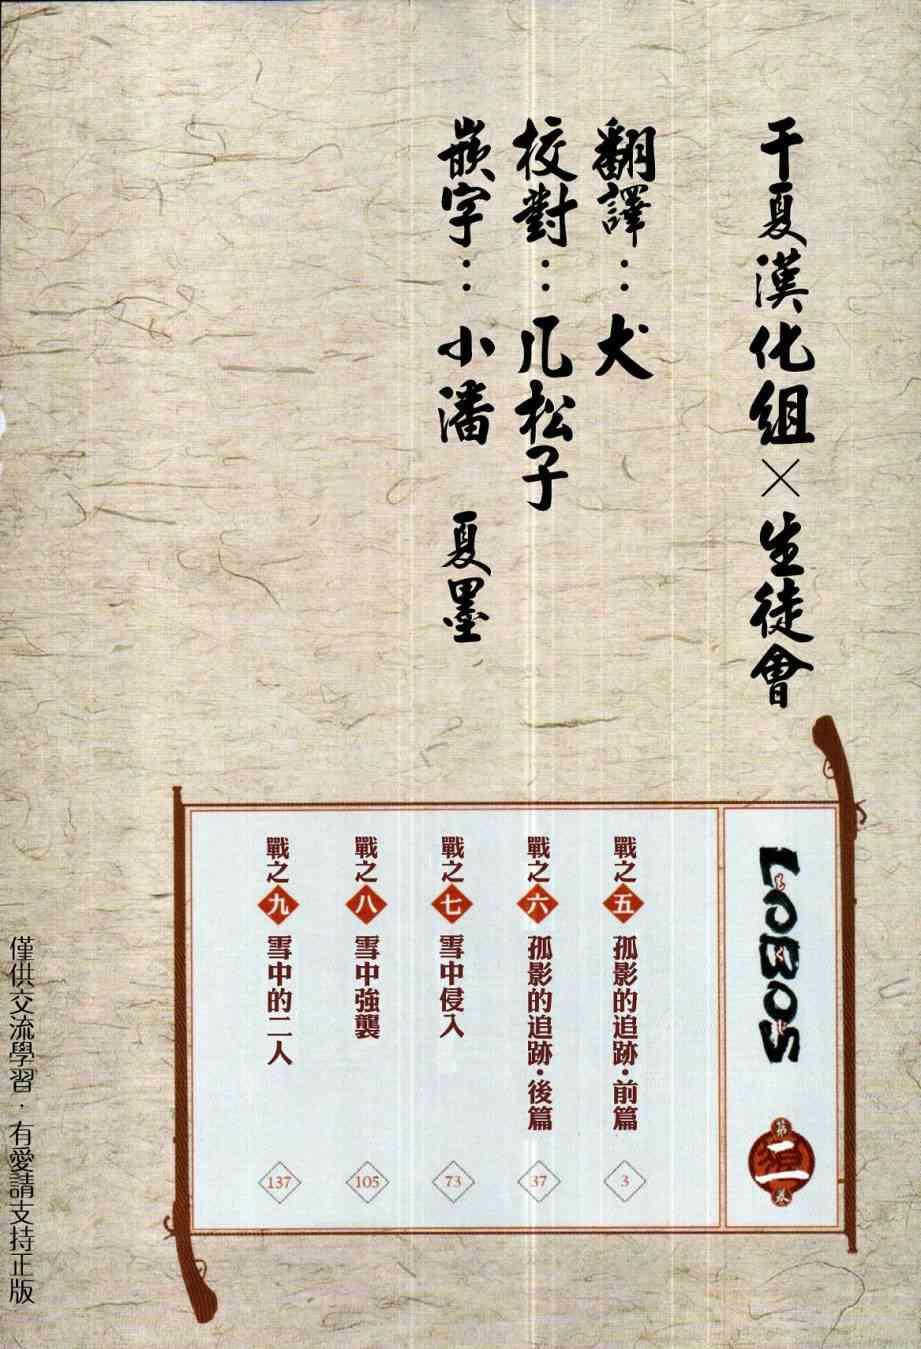 干夏漢化組×生徒會
翻譯：犬
校對：几松子
嵌字：小潘 夏墨
LOBOS
第二卷
戰之五 孤影的追跡·前篇 3
戰之六 孤影的追跡·後篇 37
戰之七 雪中侵入 73
戰之八 雪中強襲 105
戰之九 雪中的二人 137
僅供交流學習．有愛請支持正版